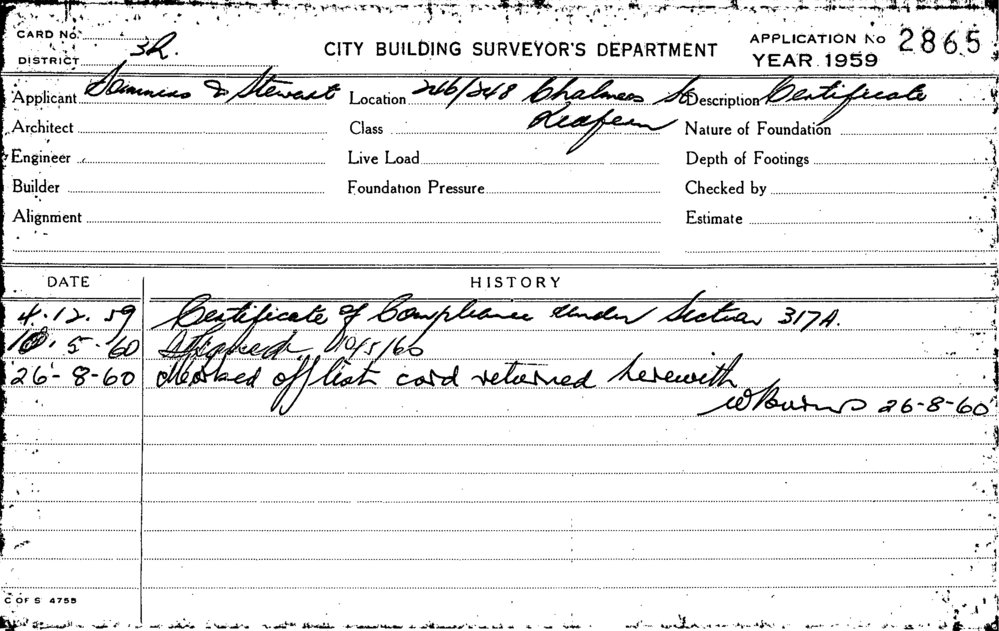 CARD No.
DISTRICT 3R.
CITY BUILDING SURVEYOR'S DEPARTMENT
APPLICATION No 2865
YEAR 1959
Applicant & Stewart Location 246/248 Chalmers St Description Certificate
Redfern
Architect Class Nature of Foundation
Engineer Live Load Depth of Footings
Builder Foundation Pressure Checked by
Alignment Estimate
DATE HISTORY
4.12.59 Certificate of Compliance under Section 317A.
10.5.60 10/5/60
26-8-60 Marked off list card returned herewith
WBurns 26-8-60
C OF S 475B